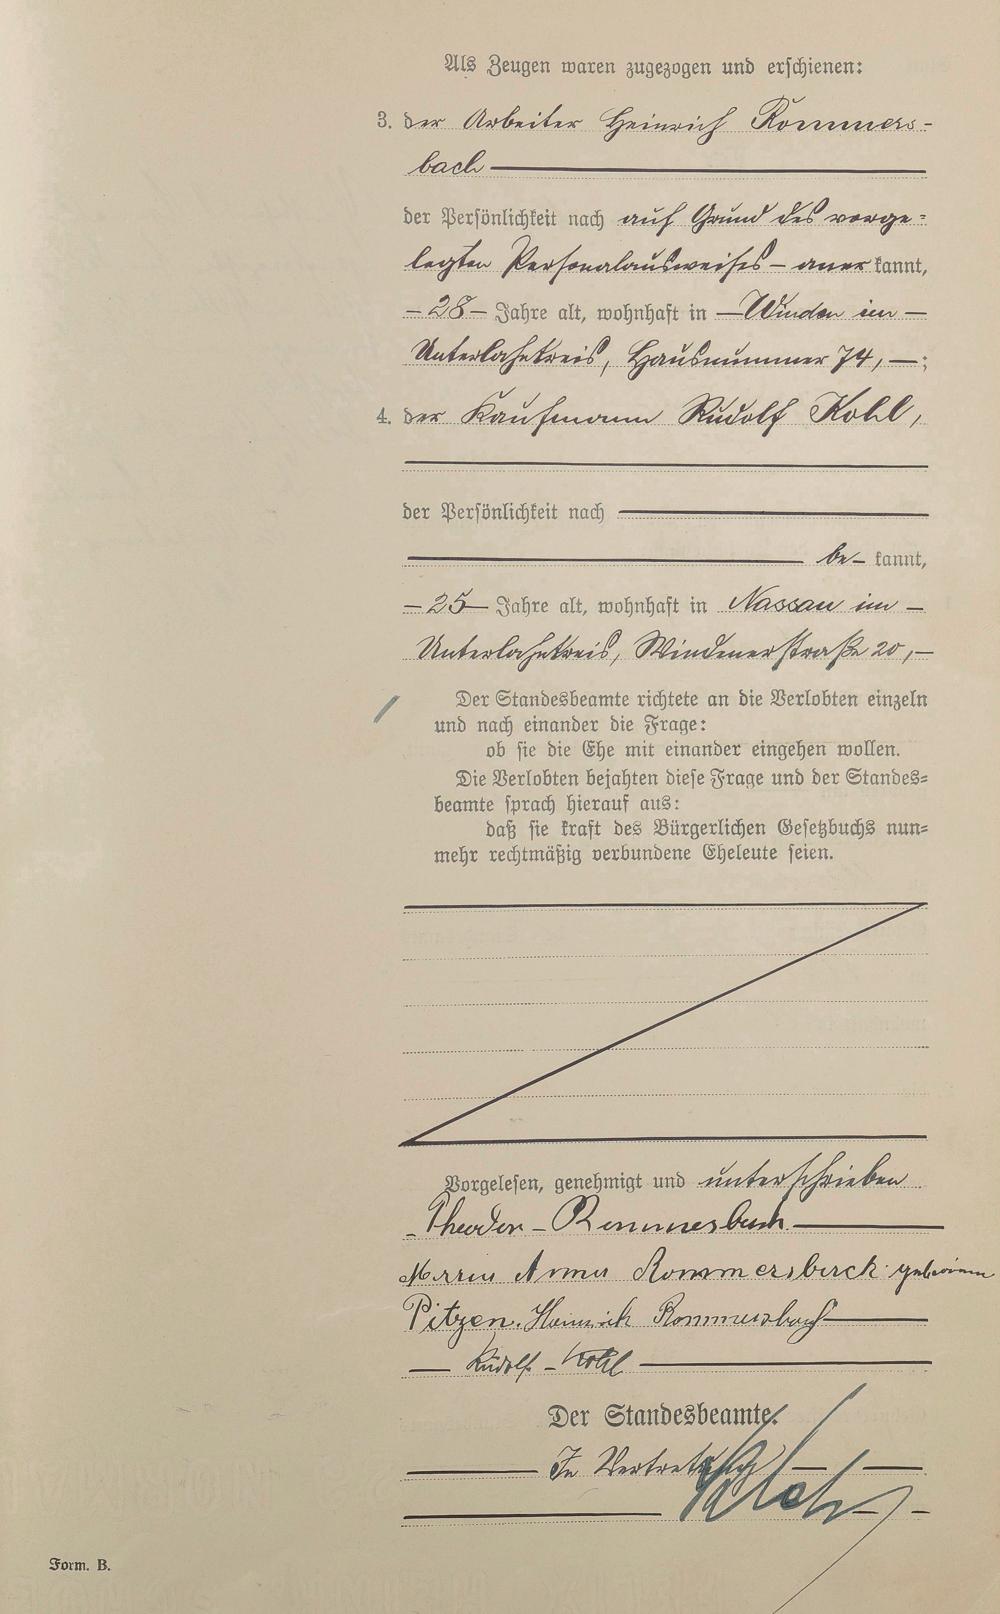 Als Zeugen waren zugezogen und erschienen:
3. der Arbeiter Heinrich Rommers-
bach
der Persönlichkeit nach auf Grund des vorge-
legten Personalausweises – aner kannt,
– 28 – Jahre alt, wohnhaft in – Winden im –
Unterlahnkreis, Hausnummer 74, – ;
4. der Kaufmann Rudolf Kohl,
der Persönlichkeit nach
be– kannt,
– 25 – Jahre alt, wohnhaft in Nassau im –
Unterlahnkreis, Windenerstraße 20, –
Der Standesbeamte richtete an die Verlobten einzeln
und nach einander die Frage:
ob sie die Ehe mit einander eingehen wollen.
Die Verlobten bejahten diese Frage und der Standes-
beamte sprach hierauf aus:
daß sie kraft des Bürgerlichen Gesetzbuchs nun-
mehr rechtmäßig verbundene Eheleute seien.
Vorgelesen, genehmigt und unterschrieben
Theodor – Rommersbach
Maria Anna Rommersbach geborene
Pitzen. Heinrich Rommersbach
Rudolf – Kohl
Der Standesbeamte.
In Vertretung
Form. B.